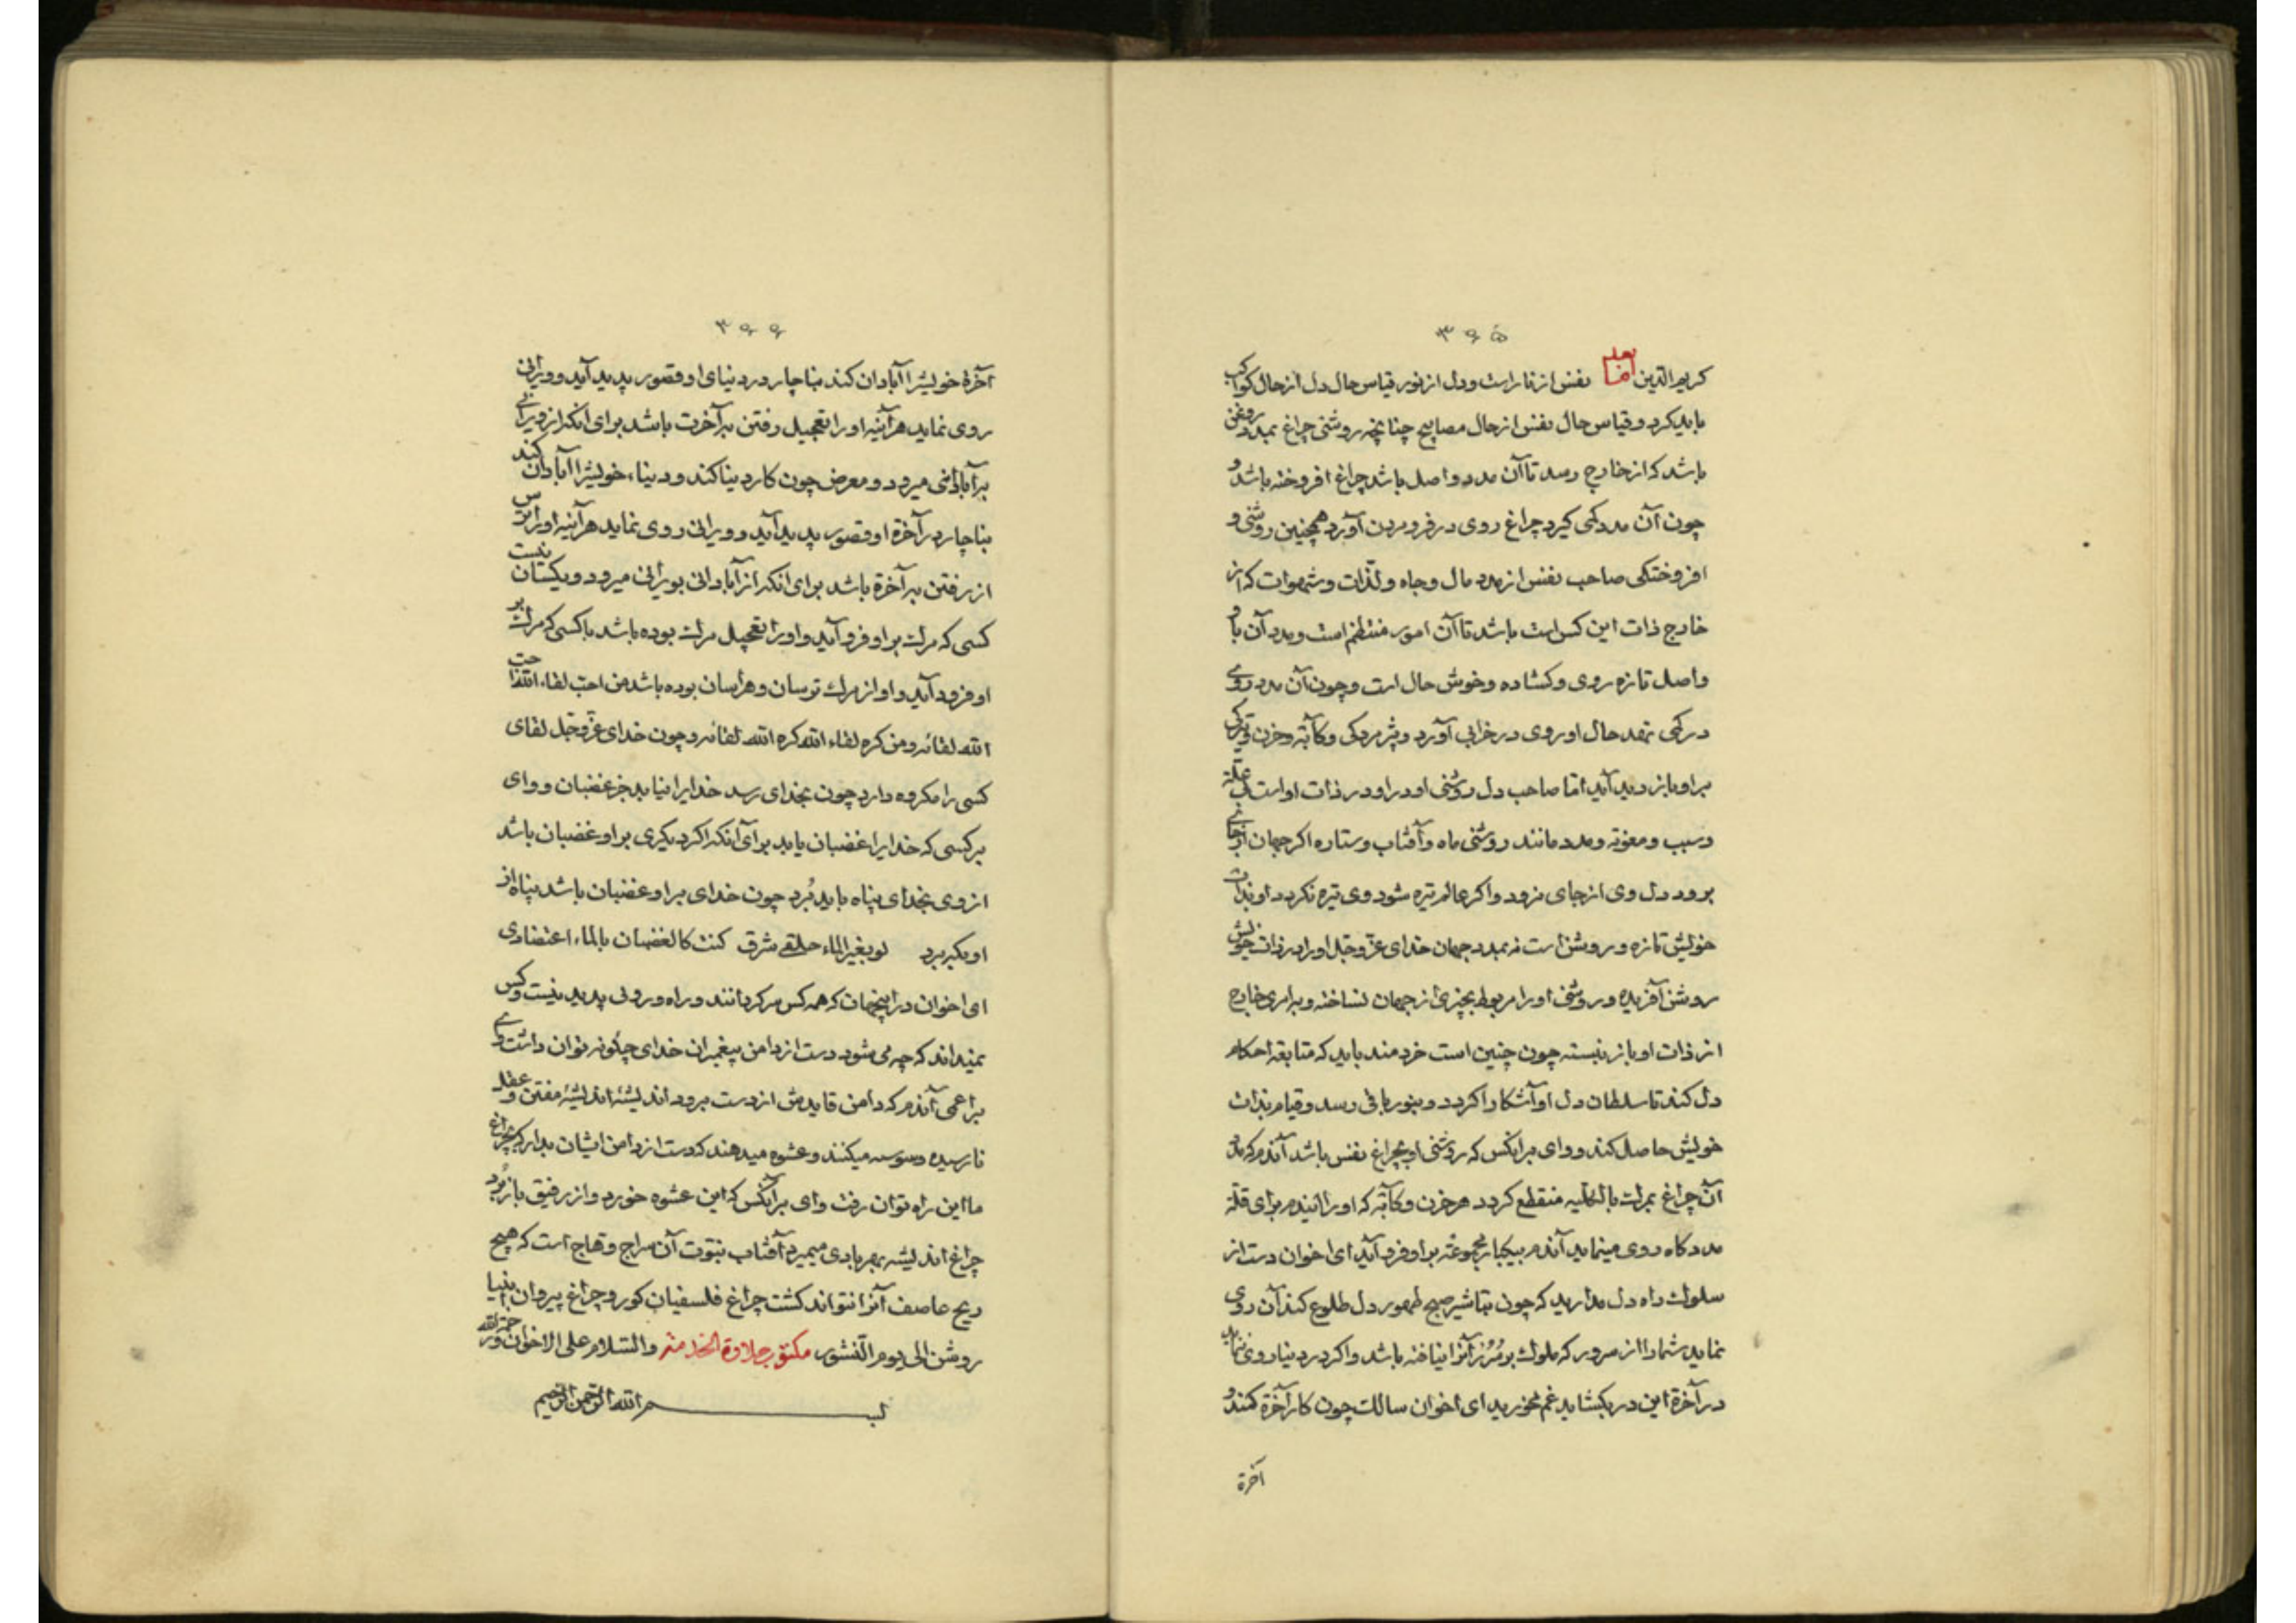 ۳۶۵
کریم الدین اما بعد نفس از نار است و دل از نور قیاس حال دل از حال کواکب
باید کرد و قیاس حال نفس از حال مصابیح چنانچه روشنی چراغ بمدد روغن
باشد که از خارج رسد تا آن مدد واصل باشد چراغ افروخته باشد و
چون آن مدد کمی کیرد چراغ روی در فرو مردن آورد همچنین روشنی و
افروختکی صاحب نفس از مدد مال و جاه و لذّات و شهوات که از
خارج ذات این کس است باشد تا آن امور منتظم است و مدد آن باو
واصل تازه روی و کشاده و خوش حال است و چون آن مدد روی
در کمی نهد حال او روی در خرابی آورد و پژمردکی و کآبة و حزن و تیرکی
بر او بازدید آید امّا صاحب دل روشنی او در ذات او است بی علّة
و سبب و معونة و مدد مانند روشنی ماه و آفتاب و ستاره اکر جهان از جای
برود دل وی از جای نرود و اکر عالم تیره شود وی تیره نکردد او بذات
خویش تازه و روشن است نه بمدد جهان خدای عزّ و جلّ او را در ذات خویش
روشن آفریده و روشنی او را مربوط بچیزی از جهان نساخته و بامری خارج
از ذات او باز نبسته چون چنین است خردمند باید که متابعة احکام
دل کند تا سلطان دل او آشکارا کردد و بنور باقی رسد و قیام بذات
خویش حاصل کند و وای بر آنکس که روشنی او بچراغ نفس باشد آندم که مدد
آن چراغ بمرک بالکلّیه منقطع کردد هر حزن و کآبة که او را ایندم برای قلّة
مدد کاه روی مینماید آندم بیکبار مجموعة بر او فرود آید ای اخوان دست از
سلوک راه دل مدارید که چون تباشیر صبح ظهور دل طلوع کند آن روی
نماید شما را از سرور که ملوک بو مُرُز آنرا نیافته باشد و اکر در دنیا روی ننماید
در آخرة این در بکشاید غم مخورید ای اخوان سالک چون کار آخرة کند و
آخرة
۳۶۶
آخرة خویشرا آبادان کند بناچار در دنیای او قصور پدید آید و ویرانی
روی نماید هر آینه او را تعجیل رفتن بآخرت باشد برای آنکه از ویرانی
بآبادانی میرود و معرض چون کار دنیا کند و دنیاء خویشرا آبادان کند
بناچار در آخرة او قصور پدید آید و ویرانی روی نماید هر آینه او را ترس
از رفتن بآخرة باشد برای آنکه از آبادانی بویرانی میرود و یکسان نیست
کسی که مرک بر او فرود آید و او را تعجیل مرک بوده باشد با کسی که مرک بر
او فرود آید و او از مرک ترسان و هراسان بوده باشد من احب لقاء الله احب
الله لقائه و من کره لقاء الله کره الله لقائه و چون خدای عزّ و جلّ لقای
کسی را مکروه دارد چون بخدای رسد خدایرا نیابد جز غضبان و وای
بر کسی که خدایرا غضبان یابد برای آنکه اکر دیکری بر او غضبان باشد
از وی بخدای پناه باید بُرد چون خدای بر او غضبان باشد پناه از
او بکه برد لو بغیر الماء حلقی شرق کنت کالغصان بالماء اعتصاری
ای اخوان در اینجهان که همه کس سرکردانند و راه و رونی پدید نیست و کس
نمیداند که چه می شود دست از دامن پیغمبران خدای چکونه توان داشت وای
بر اعمی آندم که دامن قایدش از دست برود اندیشهٔ مفتن و عقل
نارسیده وسوسه میکنند و عشوه میدهند که دست از دامن ایشان بدار که بچراغ
ما این راه توان رفت وای بر آنکس که این عشوه خورد و از رفیق باز بُرد
چراغ اندیشه بهر بادی میمیرد آفتاب نبوّت آن سراج وهّاج است که هیچ
ریح عاصف آنرا نتواند کشت چراغ فلسفیان کور و چراغ پیروان انبیا
روشن الی یوم النشور مکتوب حلاوة الخدمة والسّلام علی الاخوان و رحمة الله
بسم الله الرّحمن الرّحیم